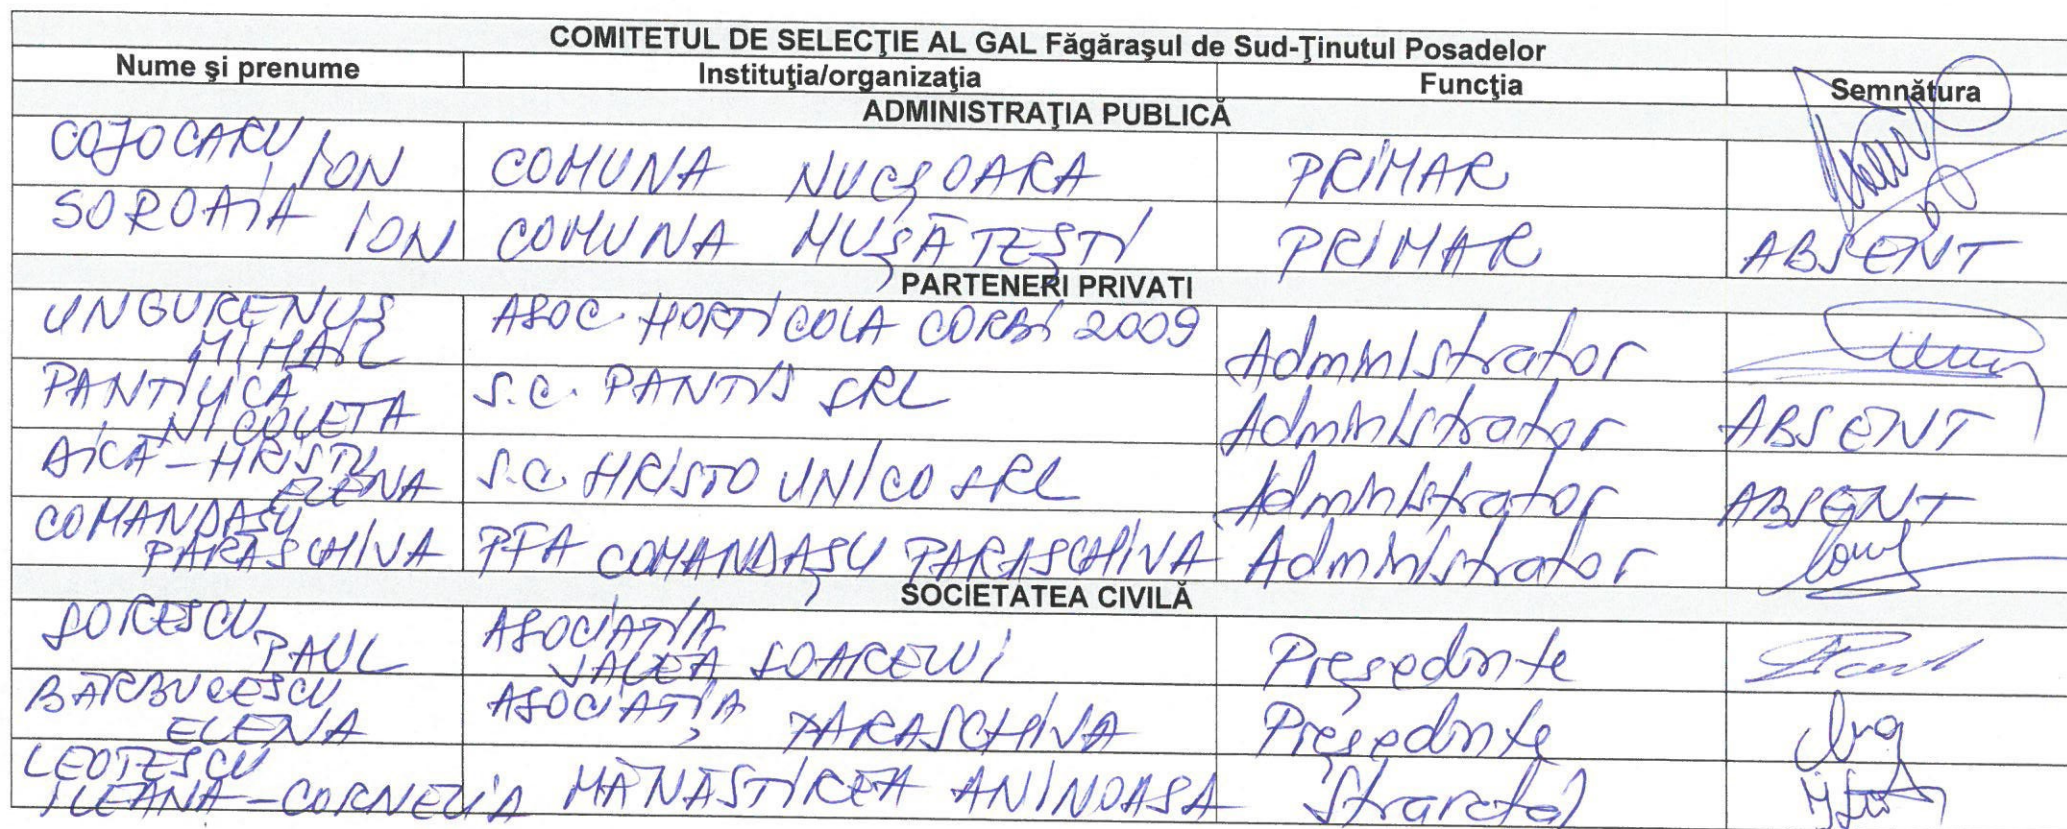 COMITETUL DE SELECŢIE AL GAL Făgăraşul de Sud-Ţinutul Posadelor
Nume şi prenume Instituţia/organizaţia Funcţia Semnătura
ADMINISTRAŢIA PUBLICĂ
COJOCARU ION COMUNA NUCȘOARA PRIMAR
SOROAIA ION COMUNA MUȘĂTEȘTI PRIMAR ABSENT
PARTENERI PRIVATI
UNGURENUS MIHAIL ASOC. HORTICOLA CORBI 2009 Administrator
PANTIUCĂ NICOLETA S.C. PANTIS SRL Administrator ABSENT
AICĂ-HRISTU ELENA S.C. HRISTO UNICO SRL Administrator ABSENT
COMANDAȘU PARASCHIVA PFA COMANDAȘU PARASCHIVA Administrator
SOCIETATEA CIVILĂ
SORESCU PAUL ASOCIAȚIA VALEA SOARELUI Președinte
BĂRBUCESCU ELENA ASOCIAȚIA PARASCHIVA Președinte
LEOTESCU ILEANA-CORNELIA MĂNĂSTIREA ANINOASA